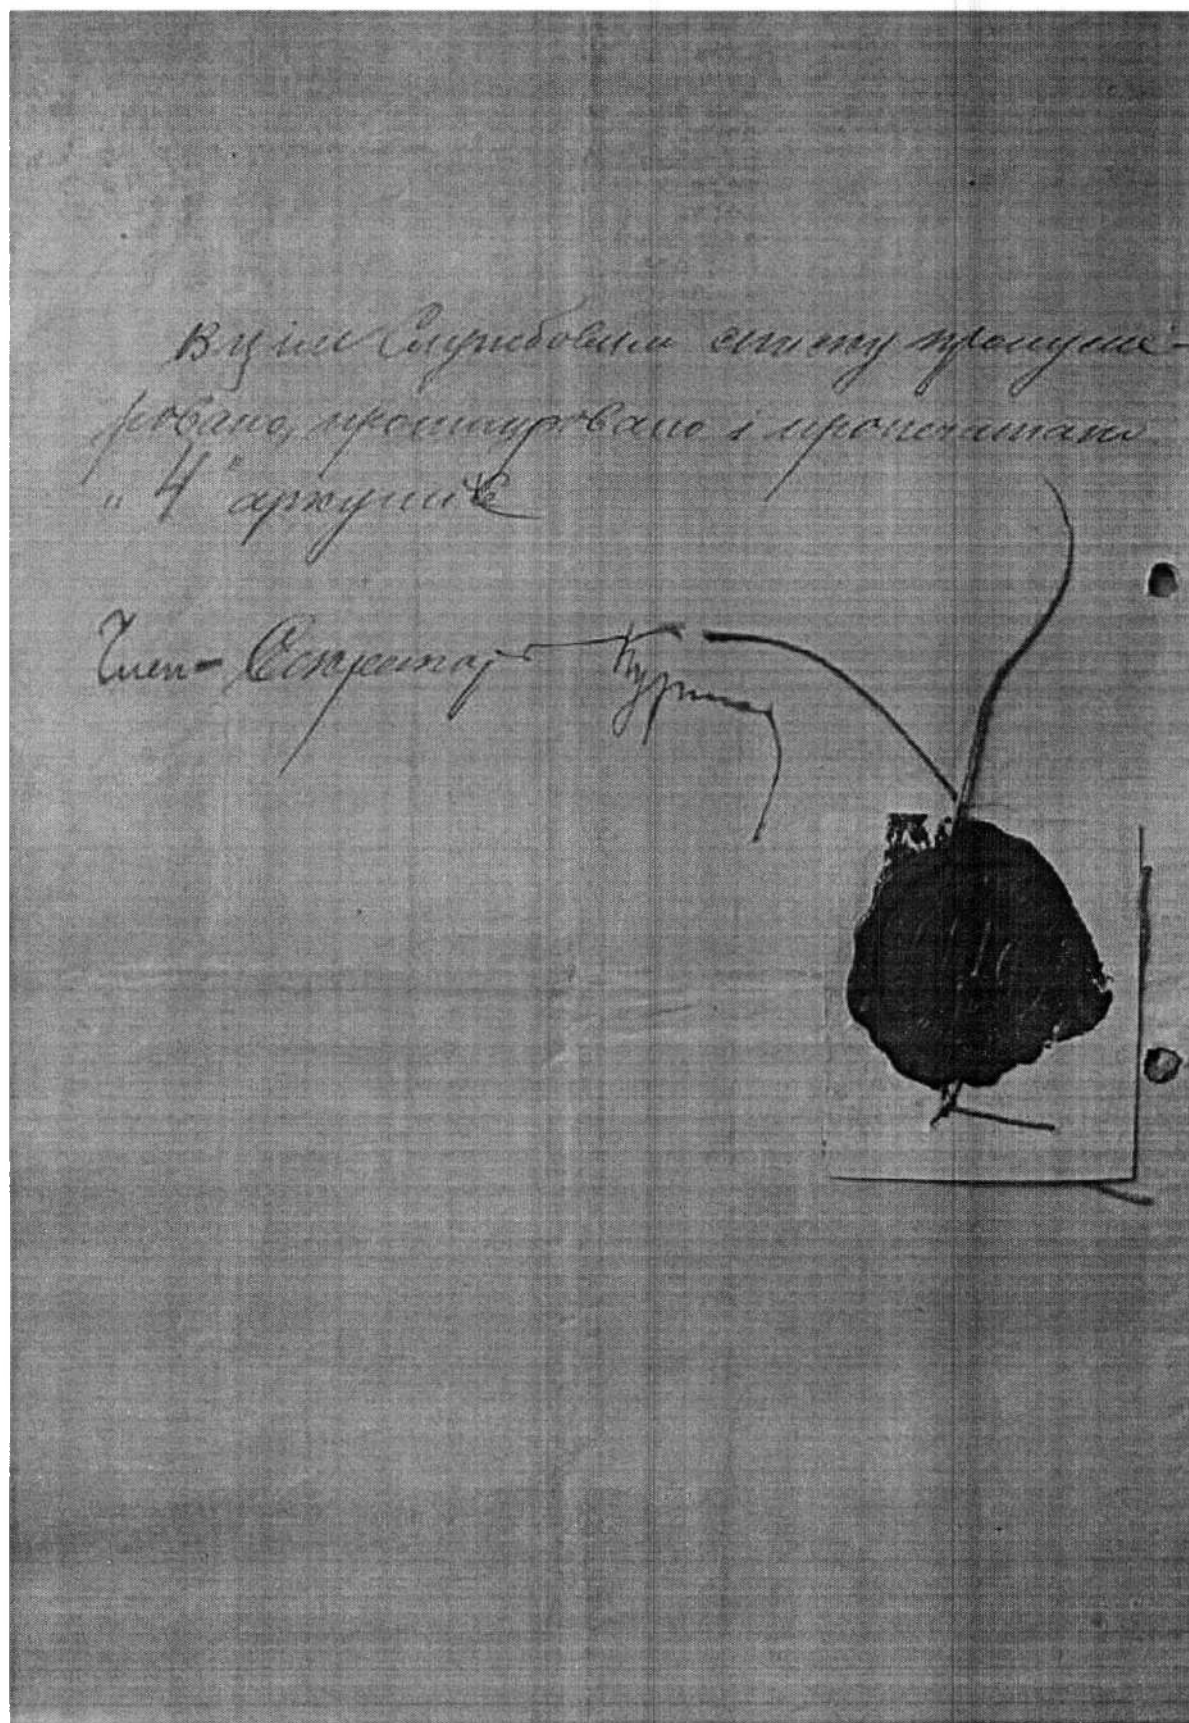 В цім Службовим списку пронуме-
ровано, прошнуровано і пропечатано
„ 4 " аркушів
Член-Секретар